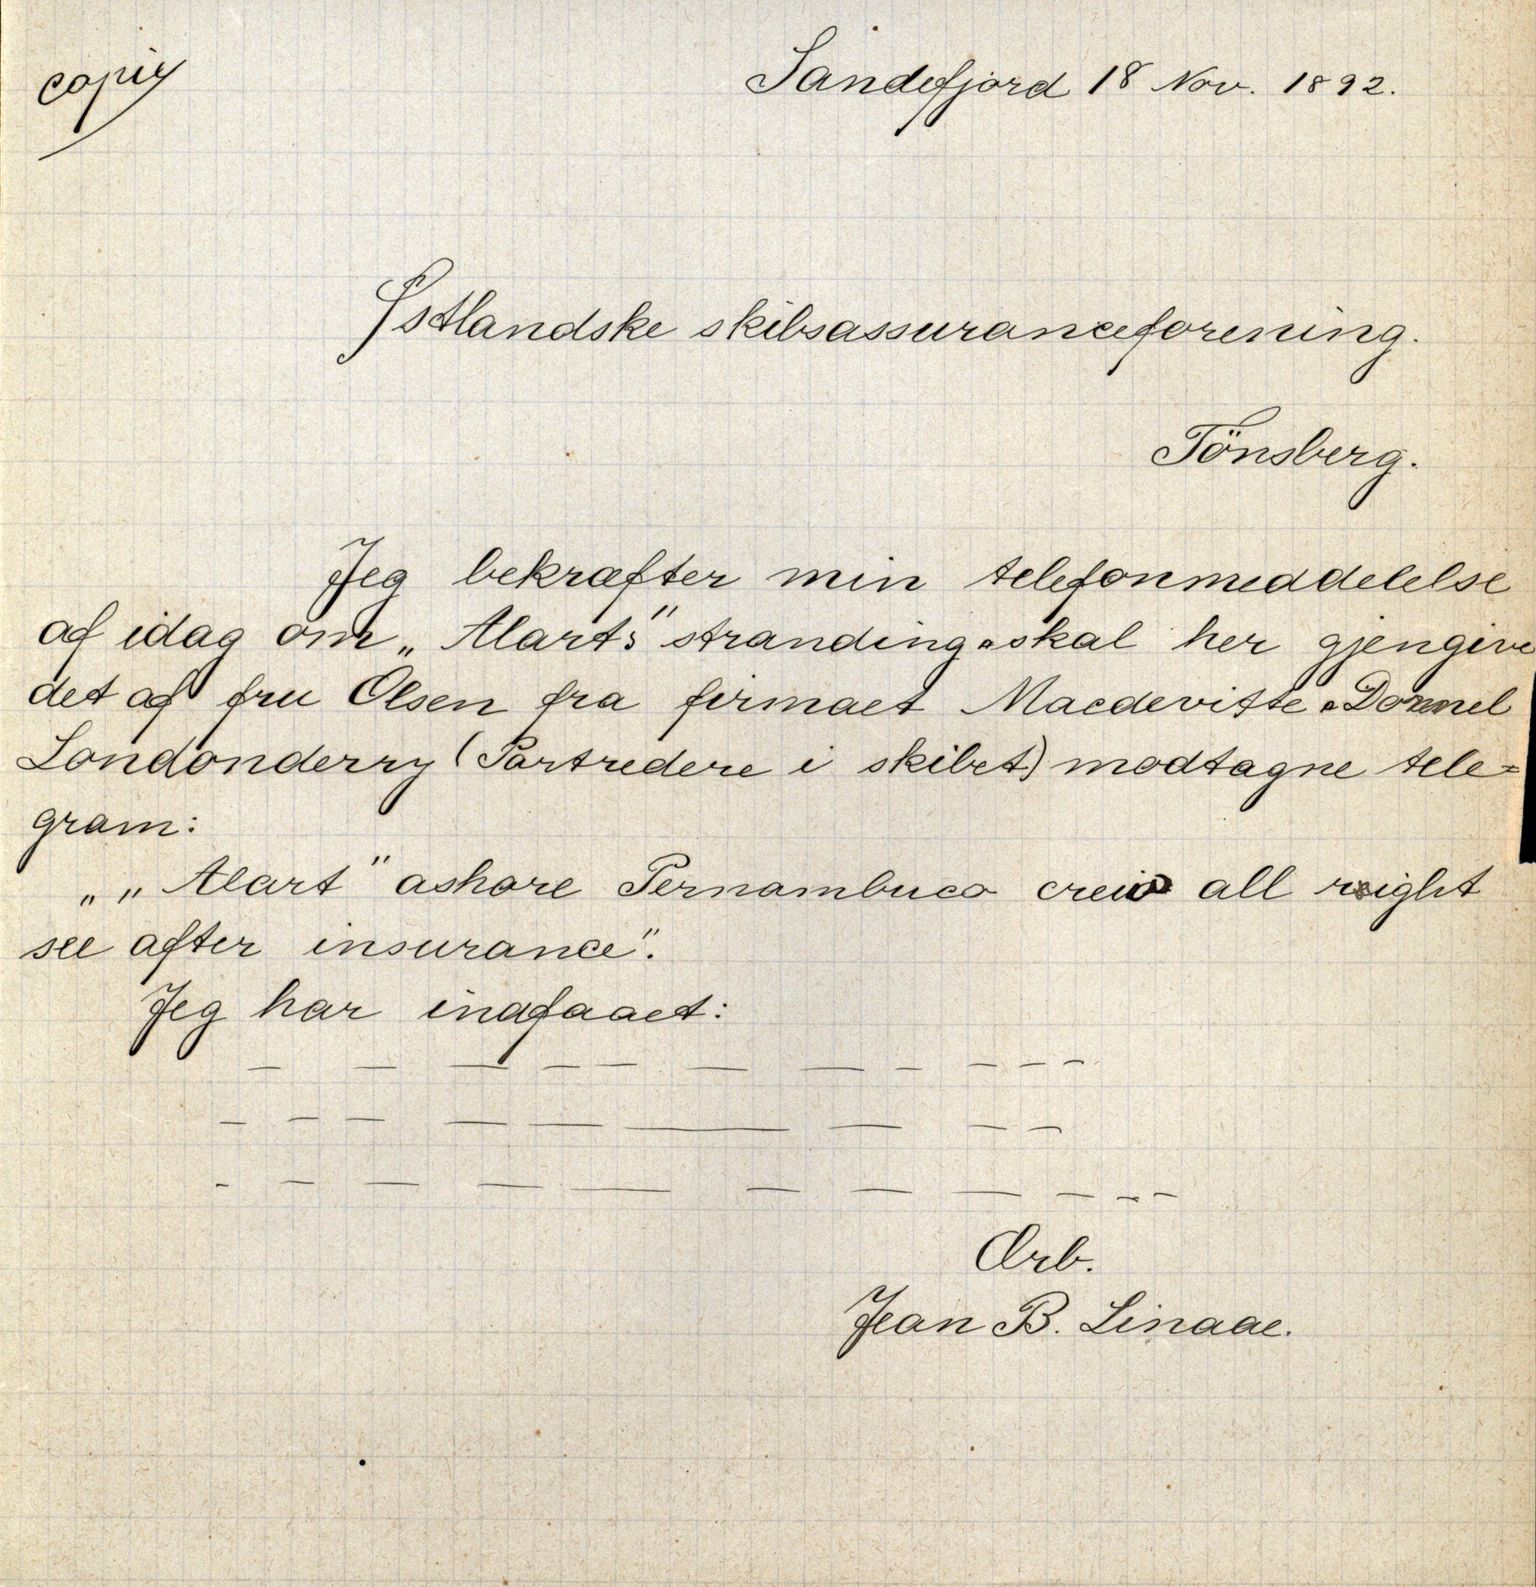 copiy
Sandefjord 18 Nov. 1892.
Østlandske skibsassuranceforening.
Tönsberg.
Jeg bekræfter min telefonmeddelelse
af idag om „Alart's" stranding & skal her gjengive
det af fru Olsen fra firmaet Macdevitte & Donnel
Londonderry (Partredere i skibet) modtagne tele=
gram:
„„Alart" ashore Pernambuco crew all right
see after insurance".
Jeg har indfaaet:
— — — — — — — — — — —
— — — — — — — — —
- — — — — — — — — - —
Ærb.
Jean B. Linaae.